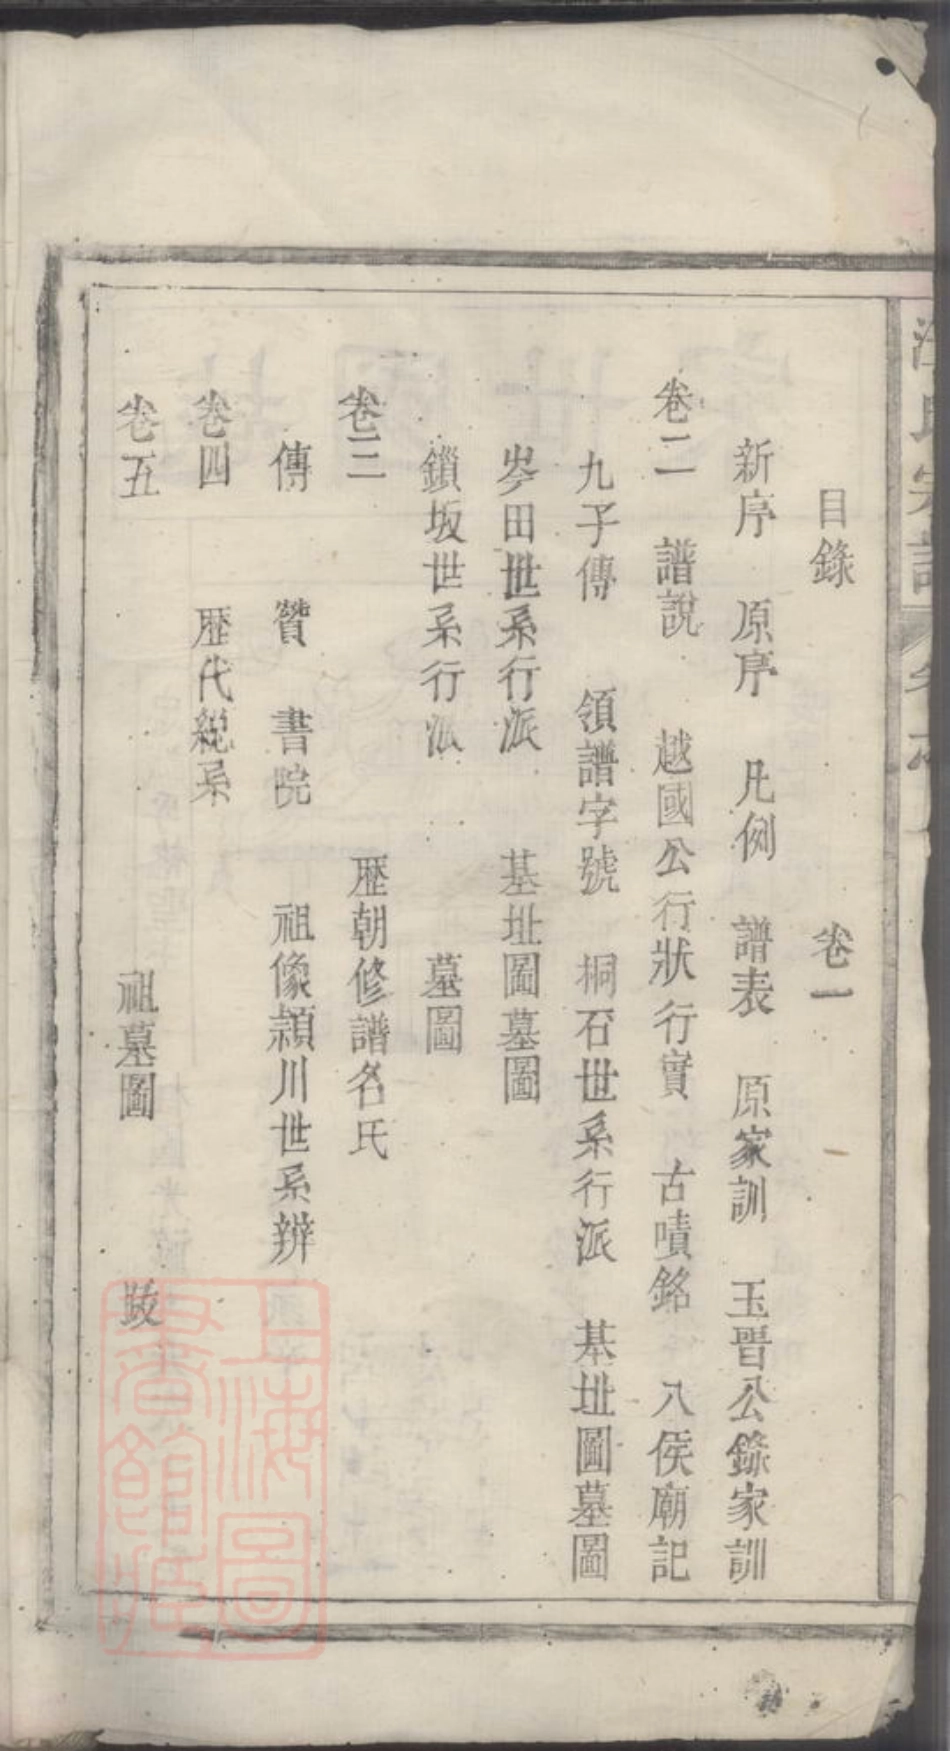 汪氏宗譜
目錄 卷一
新序 原序 凡例 譜表 原家訓 玉晋公錄家訓
卷二 譜說 越國公行狀行實 古嘖銘 八侯廟記
九子傳 領譜字號 桐石世系行派 基址圖墓圖
岑田世系行派 基址圖墓圖
鎖坂世系行派 墓圖
卷三 歷朝修譜名氏
傳 贊 書院 祖像頴川世系辨
卷四 歷代綂系
卷五 祖墓圖 跋
上海圖書館藏